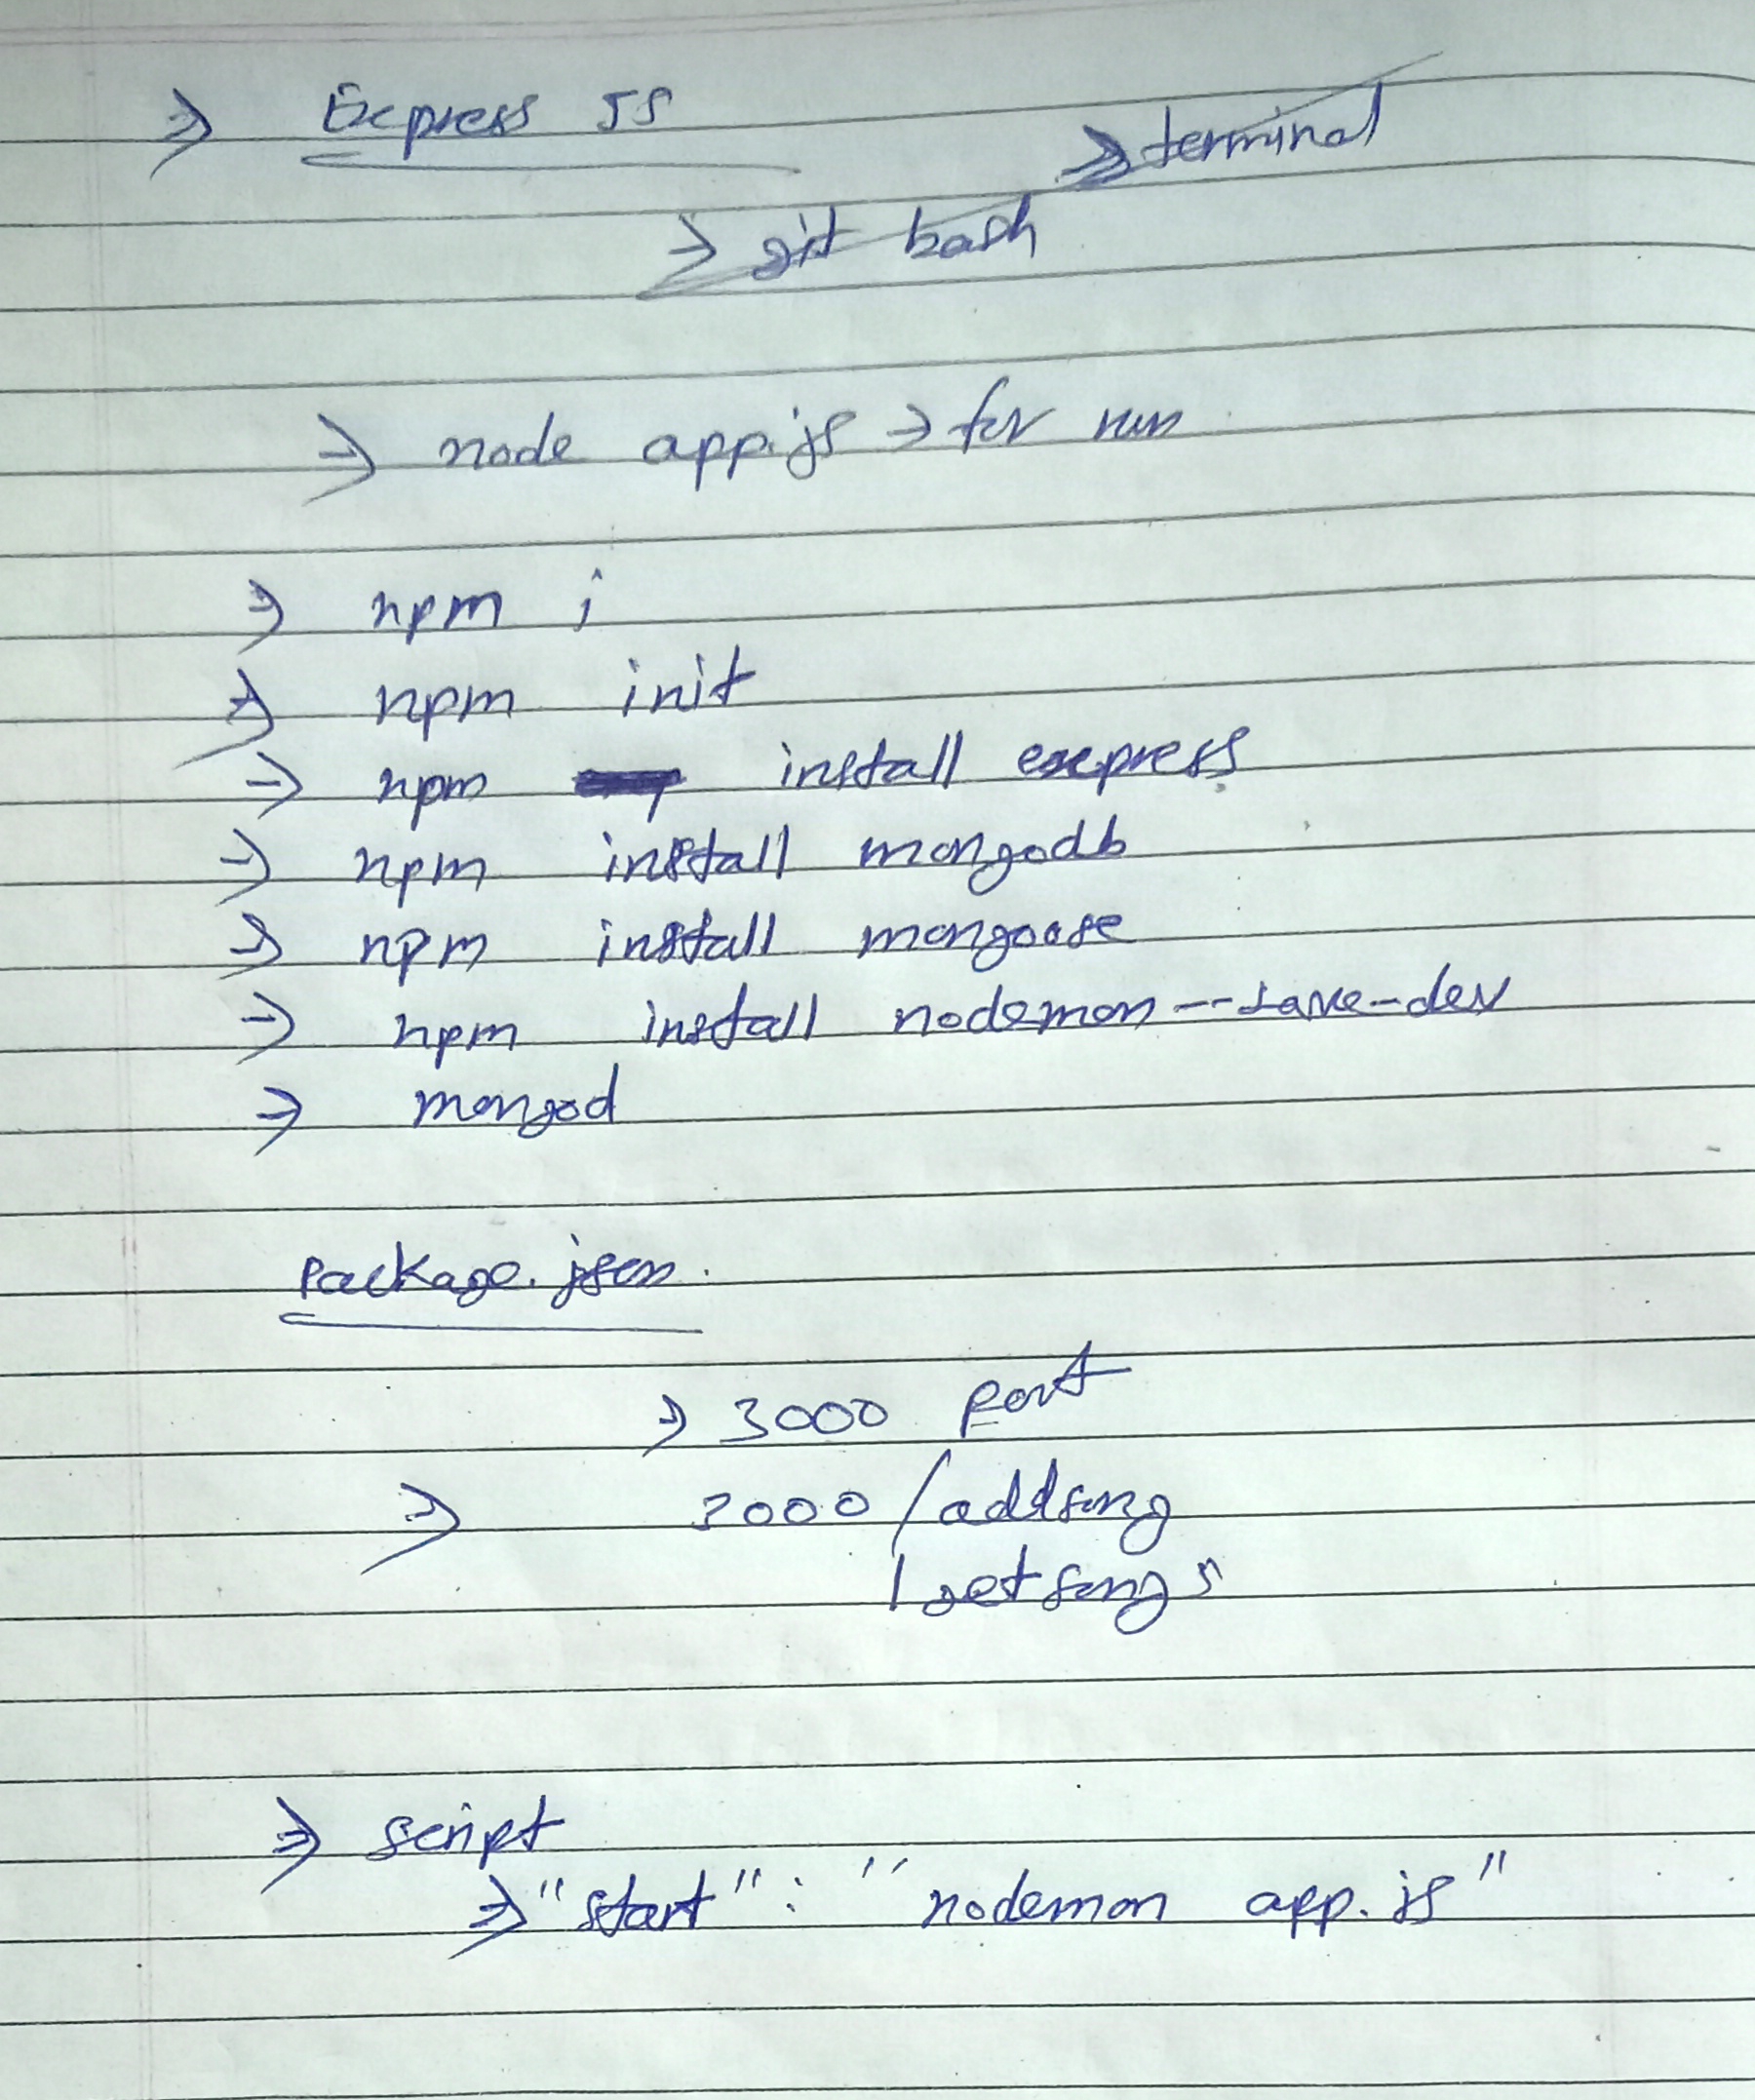 ⇒ Express JS
⇒ terminal
⇒ git bash
⇒ node app.js → for run
⇒ npm i
⇒ npm init
⇒ npm install express
⇒ npm install mongodb
⇒ npm install mongoose
⇒ npm install nodemon --save-dev
⇒ mongod
Package.json.
⇒ 3000 port
⇒ 3000 /addsong
/getsongs
⇒ script
⇒ "start" : "nodemon app.js"